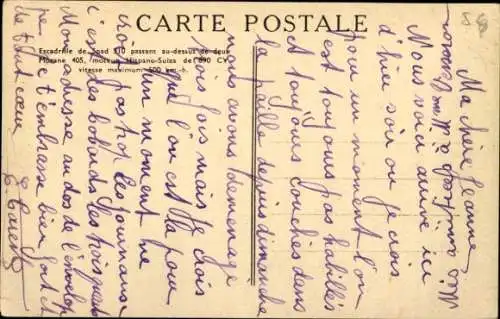 CARTE POSTALE
Escadrille de Spad 510 passant au-dessus de deux
Morane 405, moteur Hispano-Suiza de 690 CV
vitesse maximum 500 km-h.
Ma chère Jeanne,
Nous voici arrivé ici
d'hier soir ou je crois
pour un moment l'on
est toujours pas habillés
et toujours couchés dans
la paille depuis dimanche
nous avons déménagé
trois fois mais je crois
que l'on est là pour
un moment ne
crois pas trop les journaux
c'est des bobards
Mon adresse au dos de l'envelop
pe. Je t'embrasse bien fort et
de tout cœur